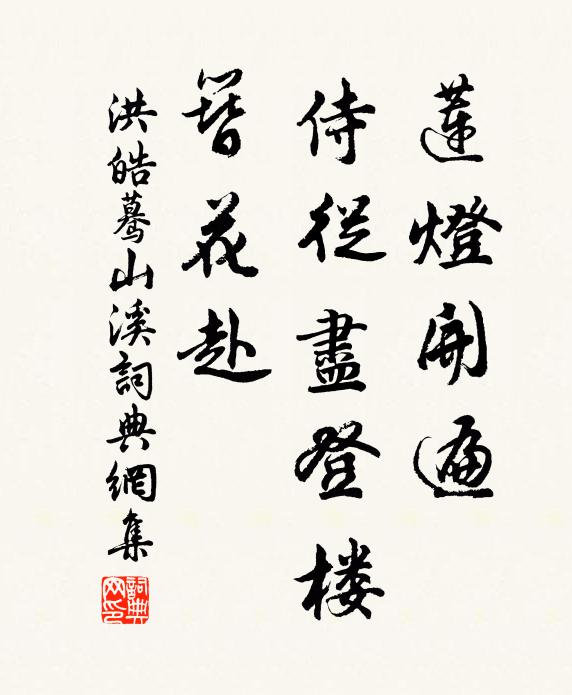 蓮燈開遍
侍從盡登楼
簪花赴
洪皓驀山溪詞典網集
詞典网印